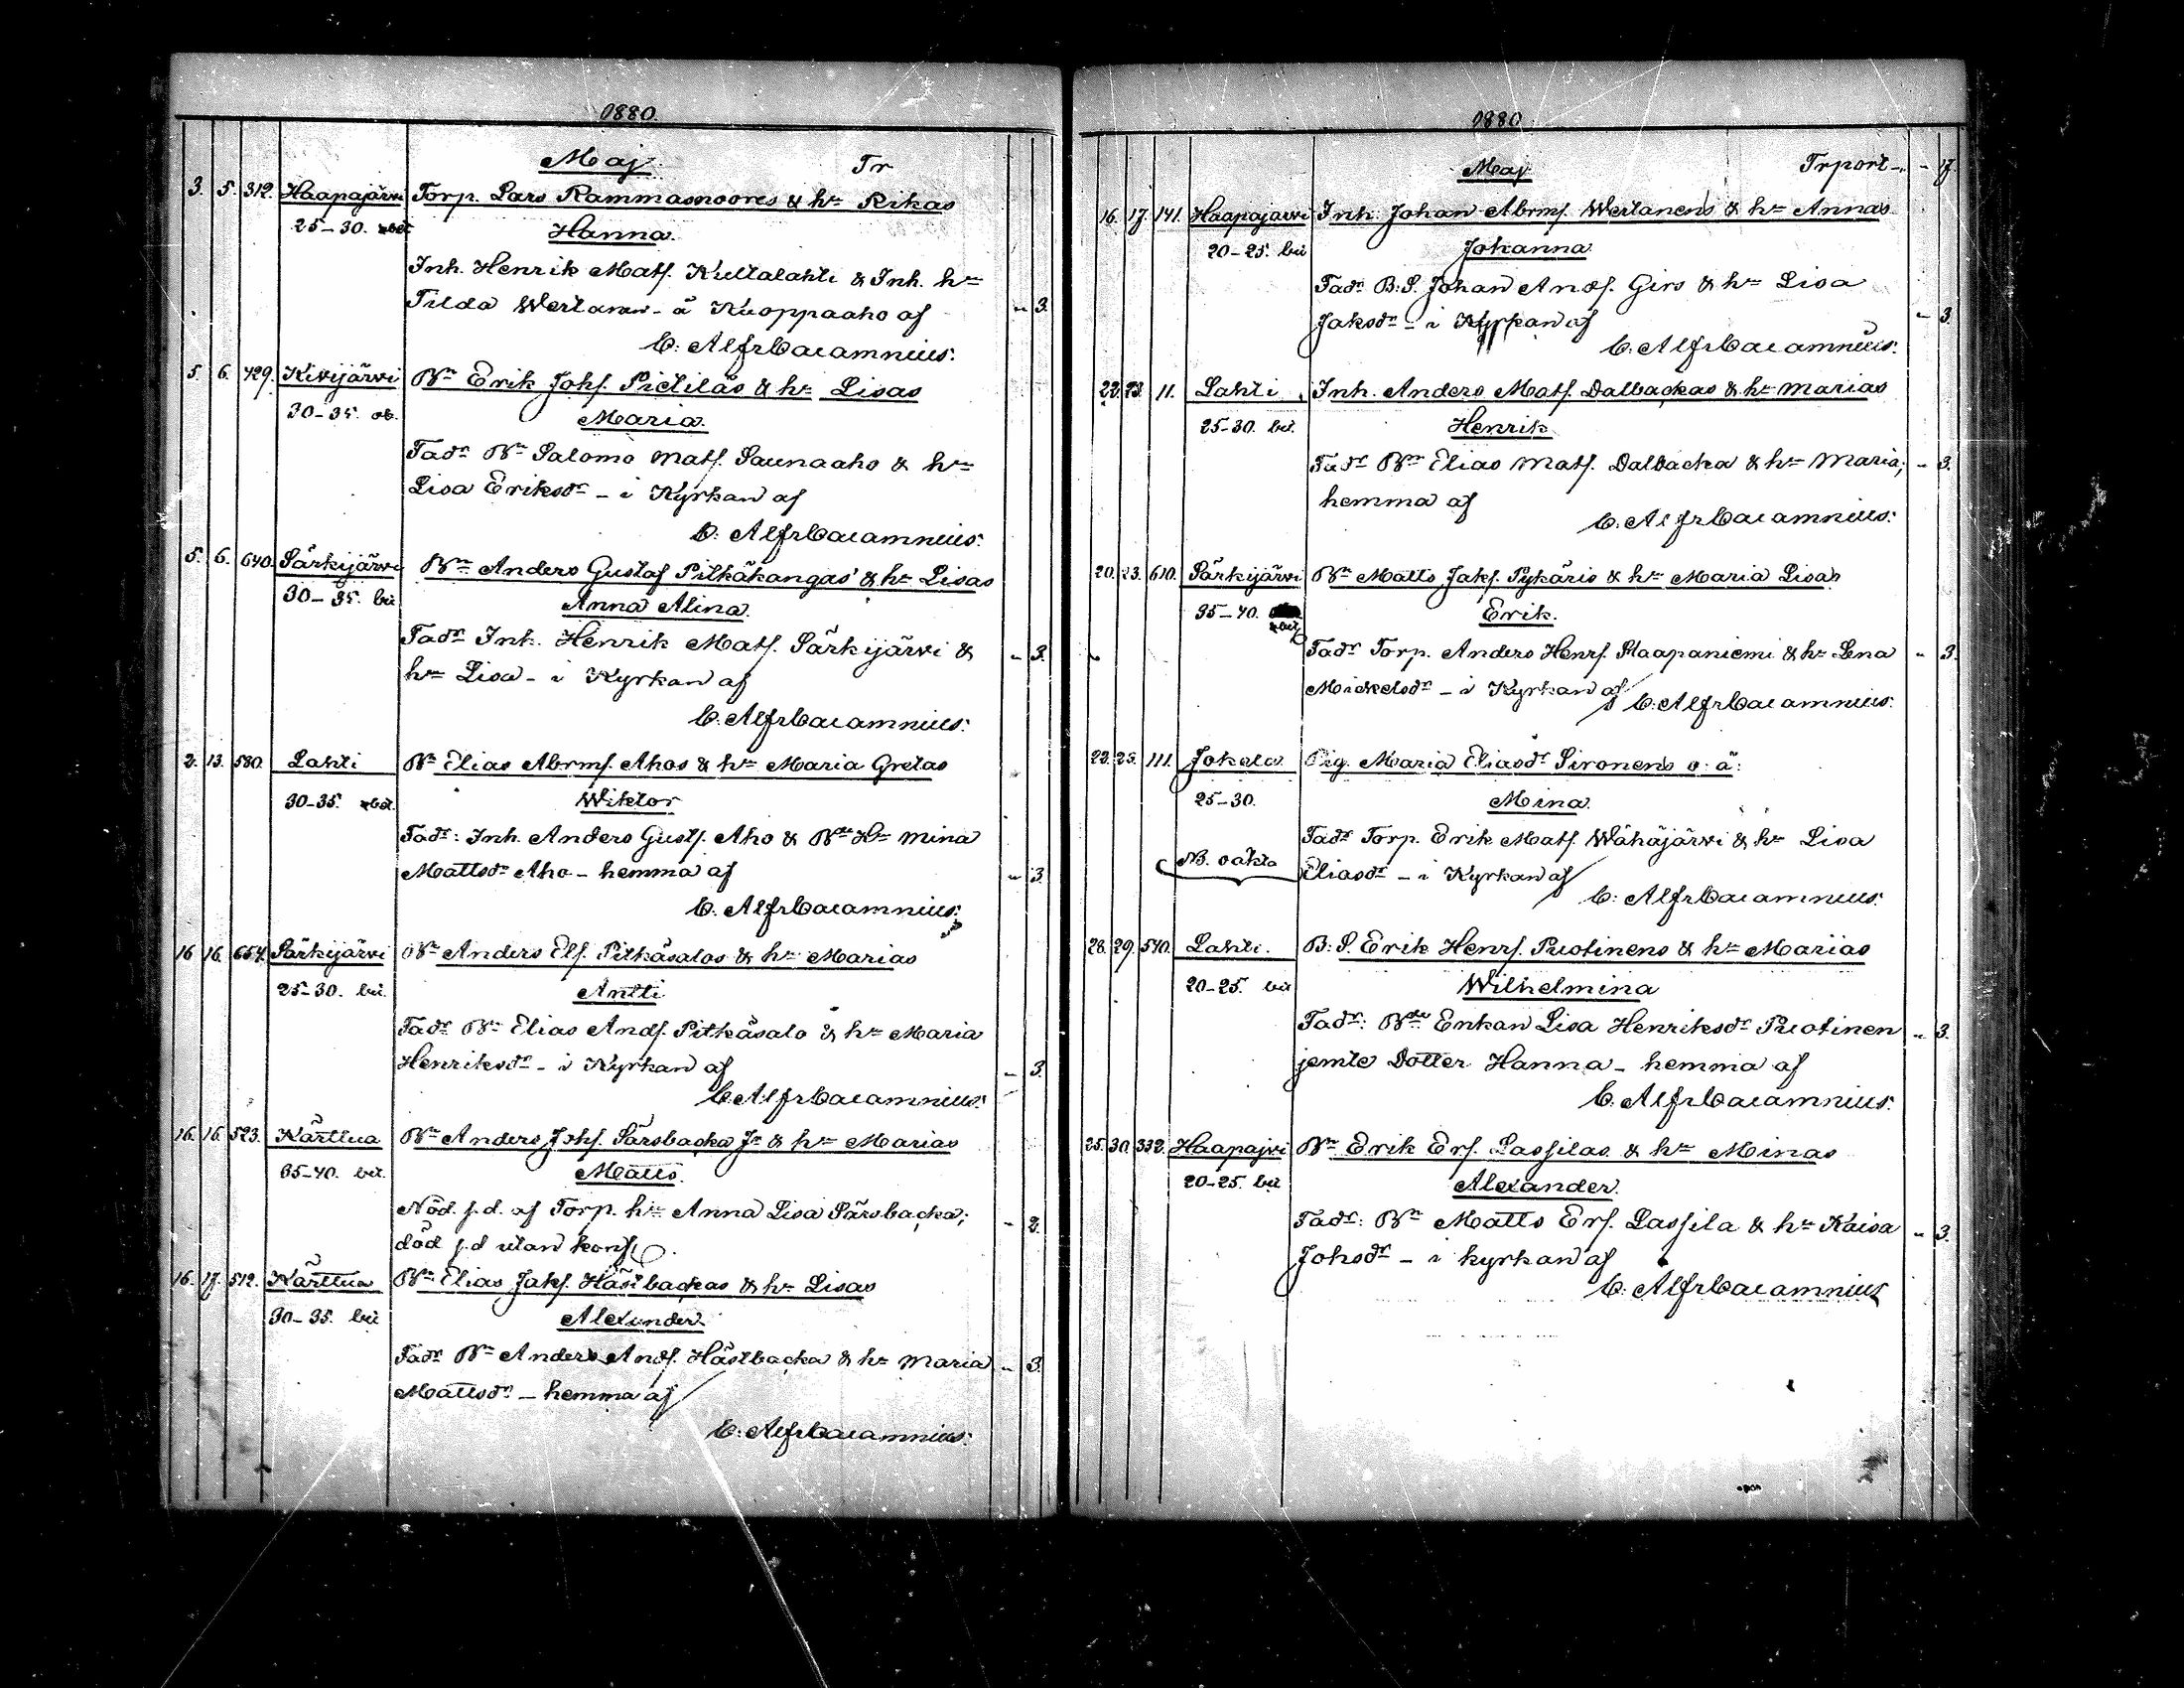 1880.
Maj Tr
3. 5. 312. Haapajärvi Torp. Lars Rammasnoores & h: Rikas
25-30. Hanna.
Inh. Henrik Mats. Kultalahti & Inh. h:
Tilda Wertanen - å Kuoppaaho af - 3.
C. Alfr Cajamnius.
5. 6. 729. Kivijärvi B:n Erik Johs. Pietiläs & h: Lisas
30-35. Maria.
Fadr B:n Salomo Mats. Saunaaho & h:
Lisa Eriksdr - i Kyrkan af
C. Alfr Cajamnius.
5. 6. 640. Särkijärvi B:n Anders Gustaf Pitkäkangas' & h: Lisas
30-35. bü Anna Alina.
Fadr Inh. Henrik Mats. Särkijärvi & - 3.
h: Lisa - i Kyrkan af
C. Alfr Cajamnius.
2. 13. 580. Lahti B:n Elias Abrms. Ahos & h: Maria Gretas
30-35. Wiktor
Fadr: Inh. Anders Gusts. Aho & B: H: Mina
Mattsdr Aho - hemma af - 3.
C. Alfr Cajamnius.
16 16. 654. Särkijärvi B:n Anders Els. Pitkäsalos & h: Marias
25-30. bü. Antti
Fadr B:n Elias Ands. Pitkäsalo & h: Maria
Henriksdr - i Kyrkan af - 3.
C. Alfr Cajamnius.
16. 16. 523. Kärttua B:n Anders Johs. Särsbacka Jr & h: Marias
35-40. bü. Matts.
Nöd. s.d. af Torp. h: Anna Lisa Särsbacka; - 2.
död s.d utan konf.
16. 17. 512. Kärttua B:n Elias Jaks. Hästbackas & h: Lisas
30-35. bü Alexander.
Fadr B:n Anders Ands. Hästbacka & h: Maria - 3.
Mattsdr - hemma af
C. Alfr Cajamnius.
1880
Maj Trport - - 17
16. 17. 141. Haapajärvi Inh. Johan Abrms. Wertanens & h: Annas
20-25. bü Johanna
Fadr B:S. Johan Ands. Girs & h: Lisa
Jaksdr - i Kyrkan af - 3.
C. Alfr Cajamnius.
22. 23. 11. Lahti Inh. Anders Mats. Dalbackas & h: Marias
25-30. bü. Henrik
Fadr B:n Elias Mats. Dalbacka & h: Maria; - 3.
hemma af
C. Alfr Cajamnius.
20. 23. 610. Särkijärvi B:n Matts Jaks. Pykäris & h: Maria Lisas
35-40. Erik.
Fadr Torp. Anders Henrs. Haapaniemi & h: Lena - 3.
Mickelsdr - i Kyrkan af C. Alfr Cajamnius.
23. 25. 111. Jokela Pig. Maria Eliasdr Sironens o: ä:
25-30. Mina.
Fadr Torp. Erik Mats. Wähäjärvi & h: Lisa
NB. oäkta Eliasdr - i Kyrkan af
C. Alfr Cajamnius.
28. 29. 540. Lahti. B:S. Erik Henrs. Puotinens & h: Marias
20-25. bü Wilhelmina
Fadr: B: Enkan Lisa Henriksdr Puotinen - 3.
jemte Dotter Hanna - hemma af
C. Alfr Cajamnius.
25. 30. 332. Haapajvi B:n Erik Ers. Lassilas & h: Minas
20-25. bü Alexander.
Fadr: B:n Matts Ers. Lassila & h: Kaisa - 3.
Johsdr - i kyrkan af
C. Alfr Cajamnius